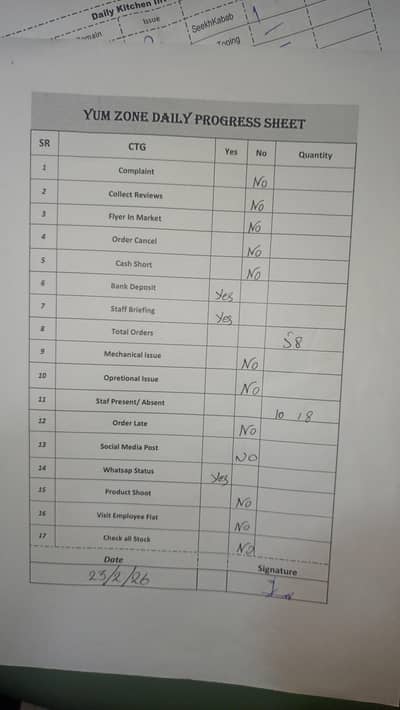 Daily Kitchen
Issue
SeekhKabab
YUM ZONE DAILY PROGRESS SHEET
SR CTG Yes No Quantity
1 Complaint No
2 Collect Reviews No
3 Flyer In Market No
4 Order Cancel No
5 Cash Short No
6 Bank Deposit Yes
7 Staff Briefing Yes
8 Total Orders 58
9 Mechanical Issue No
10 Opretional Issue No
11 Staf Present/ Absent 10 18
12 Order Late No
13 Social Media Post NO
14 Whatsap Status Yes
15 Product Shoot No
16 Visit Employee Flat No
17 Check all Stock No
Date Signature
23/2/26